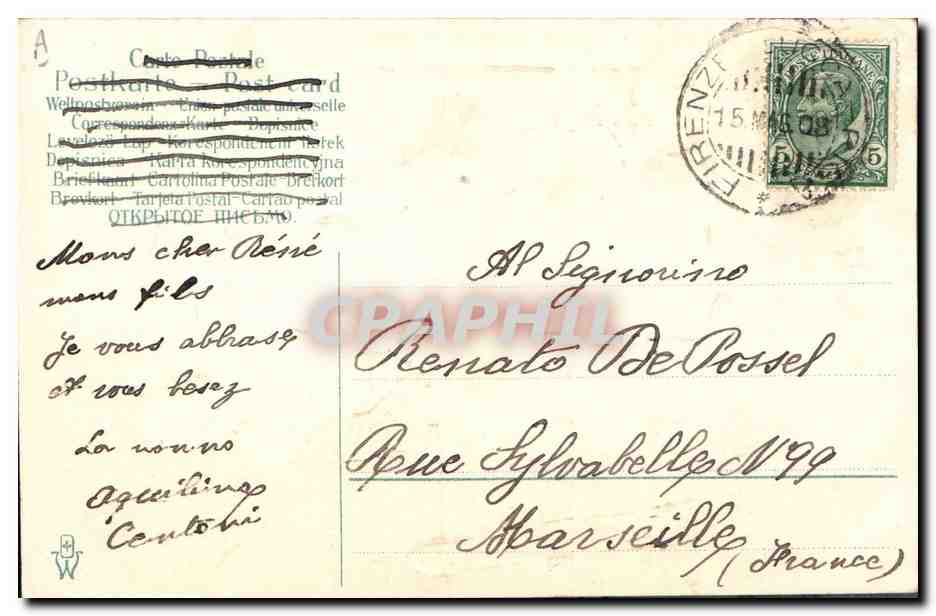 A
Carte Postale
Postkarte — Post card
Weltpostverein — Union postale universelle
Correspondenz-Karte — Dopisnice
Levelező-Lap — Korespondencni listek
Dopisnica — Karta korespondencyjna
Briefkaart — Cartolina Postale — Brefkort
Brevkort — Tarjeta Postal — Cartao postal
ОТКРЫТОЕ ПИСЬМО.
FIRENZE
15 MAG 08
5 5
Mons cher Réné
mons fils
Je vous abbrase
et vous besez
La nonno
Aquilina
Centoni
Al Signorino
Renato De Possel
Rue Sylvabelle N 99
Marseille
(France)
CPAPHIL